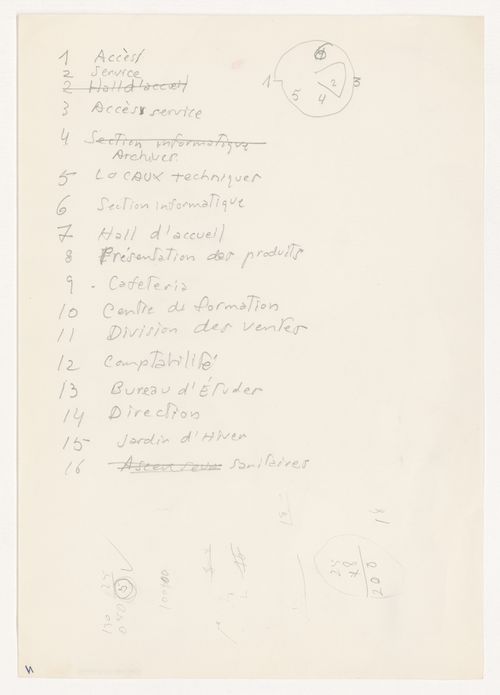 1 Accès
2 Service
2 Hall d'accueil
3 Accès service
4 Section informatique
Archives.
5 Locaux techniques
6 Section informatique
7 Hall d'accueil
8 Présentation des produits
9 - Cafeteria
10 Centre de formation
11 Division des ventes
12 Comptabilité
13 Bureau d'Études
14 Direction
15 Jardin d'Hiver
16 Ascenseurs sanitaires
1
6
3
5
4
2